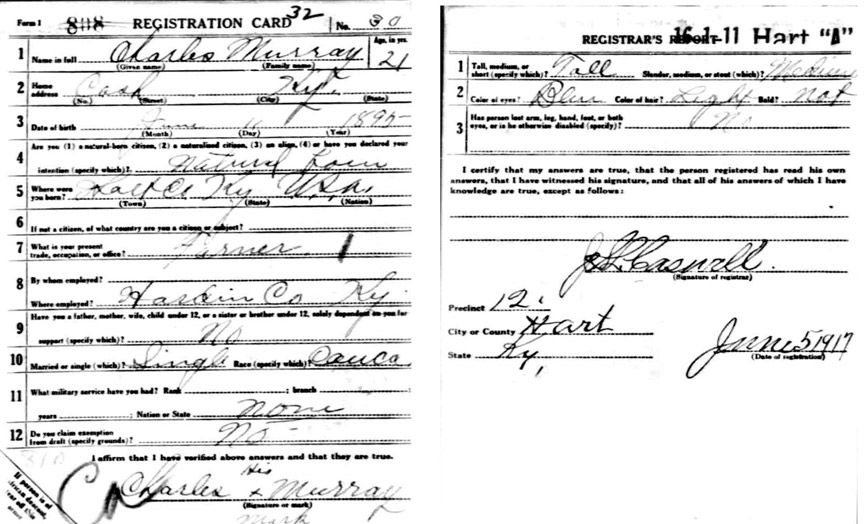 Form 1 808 REGISTRATION CARD 32 No. 30
1 Name in full Charles Murray Age, in yrs. 21
(Given name) (Family name)
2 Home address Cash Ky.
(No.) (Street) (City) (State)
3 Date of birth June 11 1895
(Month) (Day) (Year)
4 Are you (1) a natural-born citizen, (2) a naturalized citizen, (3) an alien, (4) or have you declared your
intention (specify which)? Natural born
5 Where were you born? Hart Co Ky U.S.A.
(Town) (State) (Nation)
6 If not a citizen, of what country are you a citizen or subject?
7 What is your present trade, occupation, or office? Farmer 1
8 By whom employed?
Where employed? Hardin Co Ky.
9 Have you a father, mother, wife, child under 12, or a sister or brother under 12, solely dependent on you for
support (specify which)? No
10 Married or single (which)? Single Race (specify which)? Cauca.
11 What military service have you had? Rank ; branch
years ; Nation or State None
12 Do you claim exemption from draft (specify grounds)? No
I affirm that I have verified above answers and that they are true.
His
Charles x Murray
(Signature or mark)
Mark
If person is of
African descent,
REGISTRAR'S REPORT 16-1-11 Hart "A"
1 Tall, medium, or short (specify which)? Tall Slender, medium, or stout (which)? Medium
2 Color of eyes? Blue Color of hair? Light Bald? Not
3 Has person lost arm, leg, hand, foot, or both
eyes, or is he otherwise disabled (specify)? No
I certify that my answers are true, that the person registered has read his own
answers, that I have witnessed his signature, and that all of his answers of which I have
knowledge are true, except as follows:
Caswell
(Signature of registrar)
Precinct 12
City or County Hart
State Ky,
June 5 1917
(Date of registration)